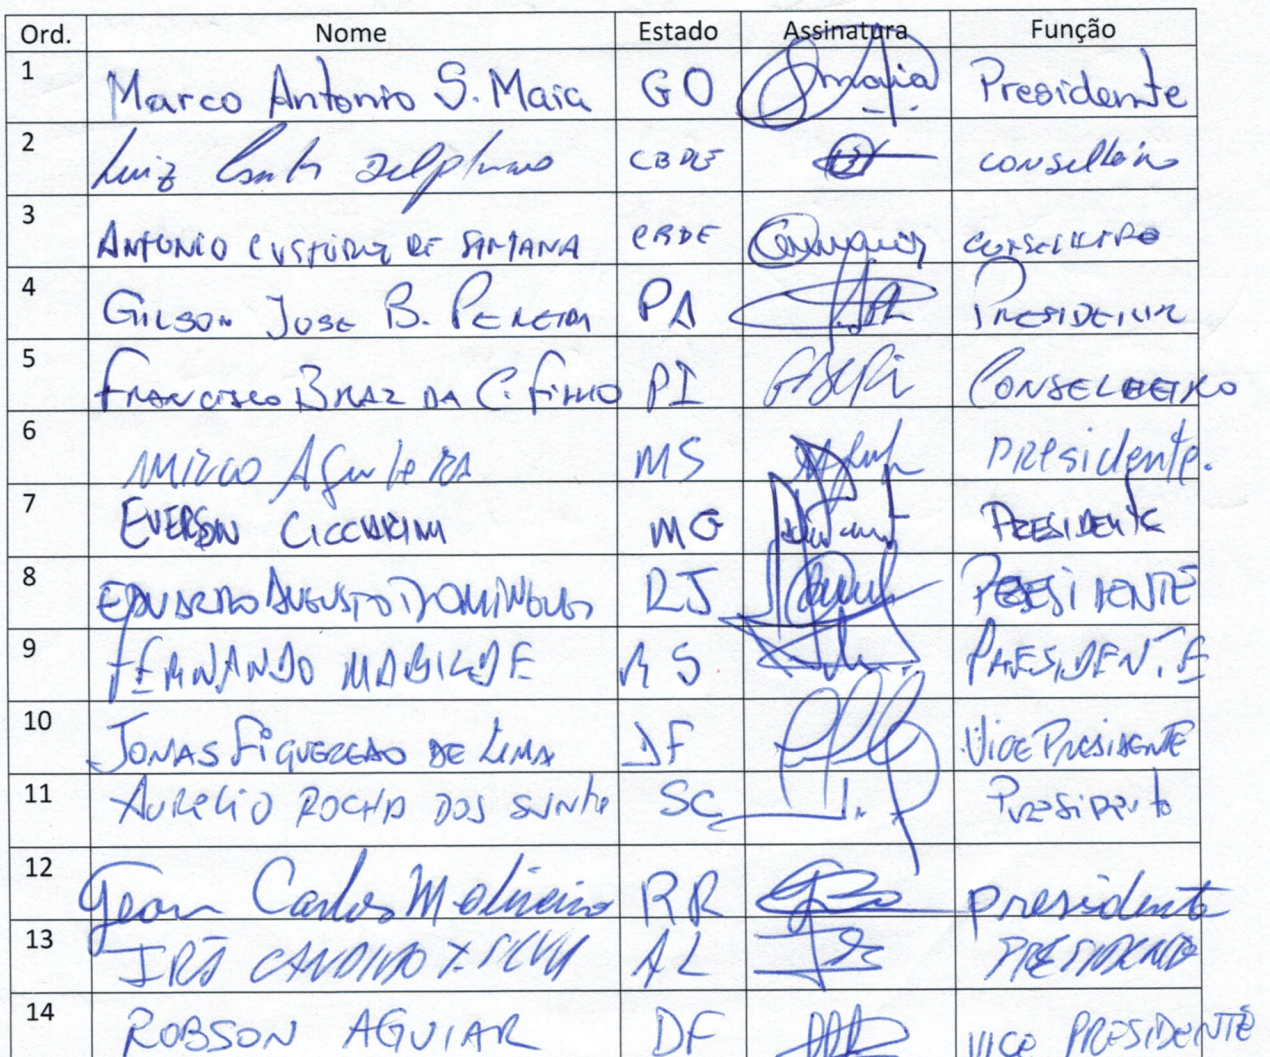 Ord. Nome Estado Assinatura Função
1 Marco Antonio S. Maia GO Presidente
2 Luiz Delphino CBDE conselheiro
3 ANTONIO CUSTÓDIO DE SANTANA CBDE CONSELHEIRO
4 GILSON JOSE B. PEREIRA PA PRESIDENTE
5 FRANCISCO BRAZ DA C. FILHO PI CONSELHEIRO
6 MIRCO AGUILERA MS PRESIDENTE.
7 EVERSON CICCARINI MG PRESIDENTE
8 EDUARDO AUGUSTO DOMINGUES RJ PRESIDENTE
9 FERNANDO MABILDE RS PRESIDENTE
10 JONAS FIGUEREDO DE LIMA DF VICE PRESIDENTE
11 AURELIO ROCHA DOS SANTOS SC PRESIDENTE
12 Gean Carlos Molineiro RR presidente
13 IRÃ CANDIDO SILVA AL PRESIDENTE
14 ROBSON AGUIAR DF VICE PRESIDENTE